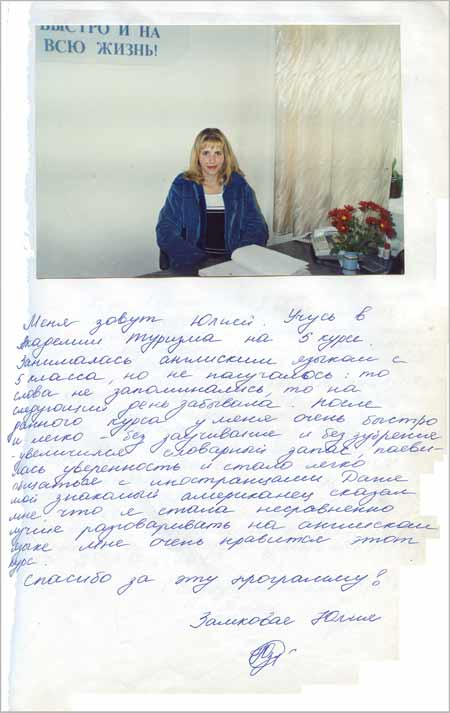 БЫСТРО И НА
ВСЮ ЖИЗНЬ!
Меня зовут Юлией. Учусь в
Академии туризма на 5 курсе.
Занималась англиским языкам с
5 класса, но не палучалось: то
слова не запоминались, то на
следующий день забывала. После
данного курса у меня очень быстро
и легко - без заучивание и без зубрение
- увеличился словарный запас, паеви-
лась уверенность и стало легко
общатьсе с иностранцами. Даже
мой знакомый американец сказал
мне что я стала несравненно
лучше разговаривать на англиском
языке. Мне очень нравится этот
курс.
Спасибо за эту программу!
Замковае Юлия